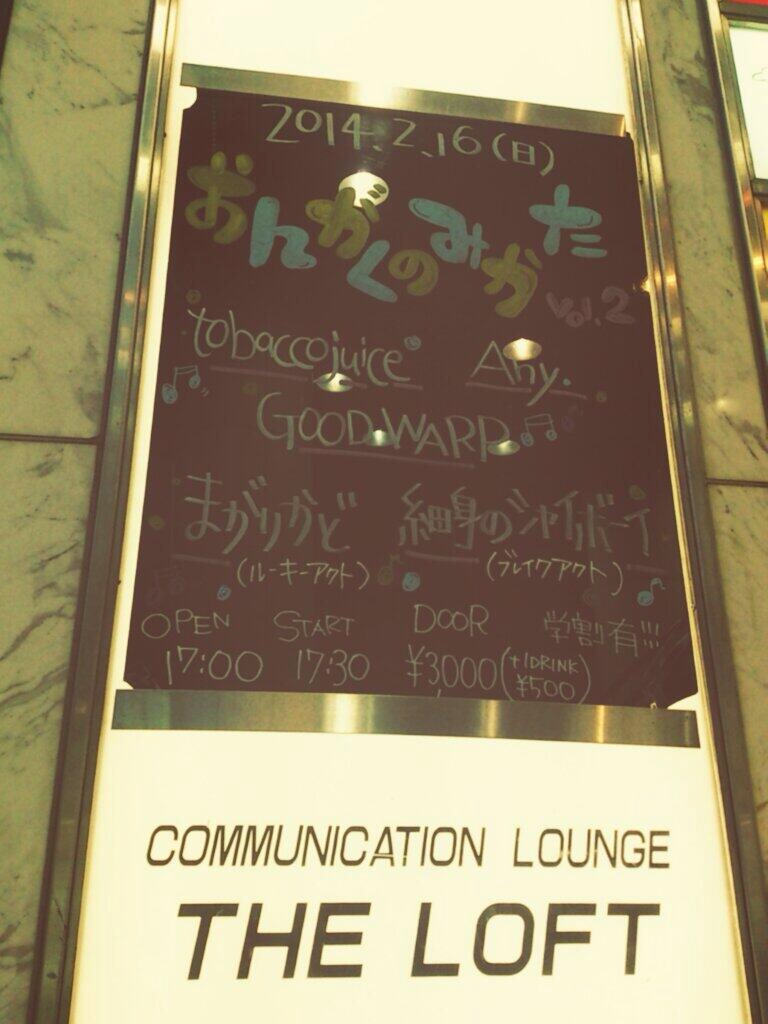 2014.2.16(日)
おんがくのみかた
vol.2
tobaccojuice Any.
GOODWARP
まがりかど 細身のシャイボーイ
(ルーキーアクト) (ブレイクアクト)
OPEN START DOOR 学割有!!!
17:00 17:30 ¥3000(+1DRINK ¥500)
COMMUNICATION LOUNGE
THE LOFT